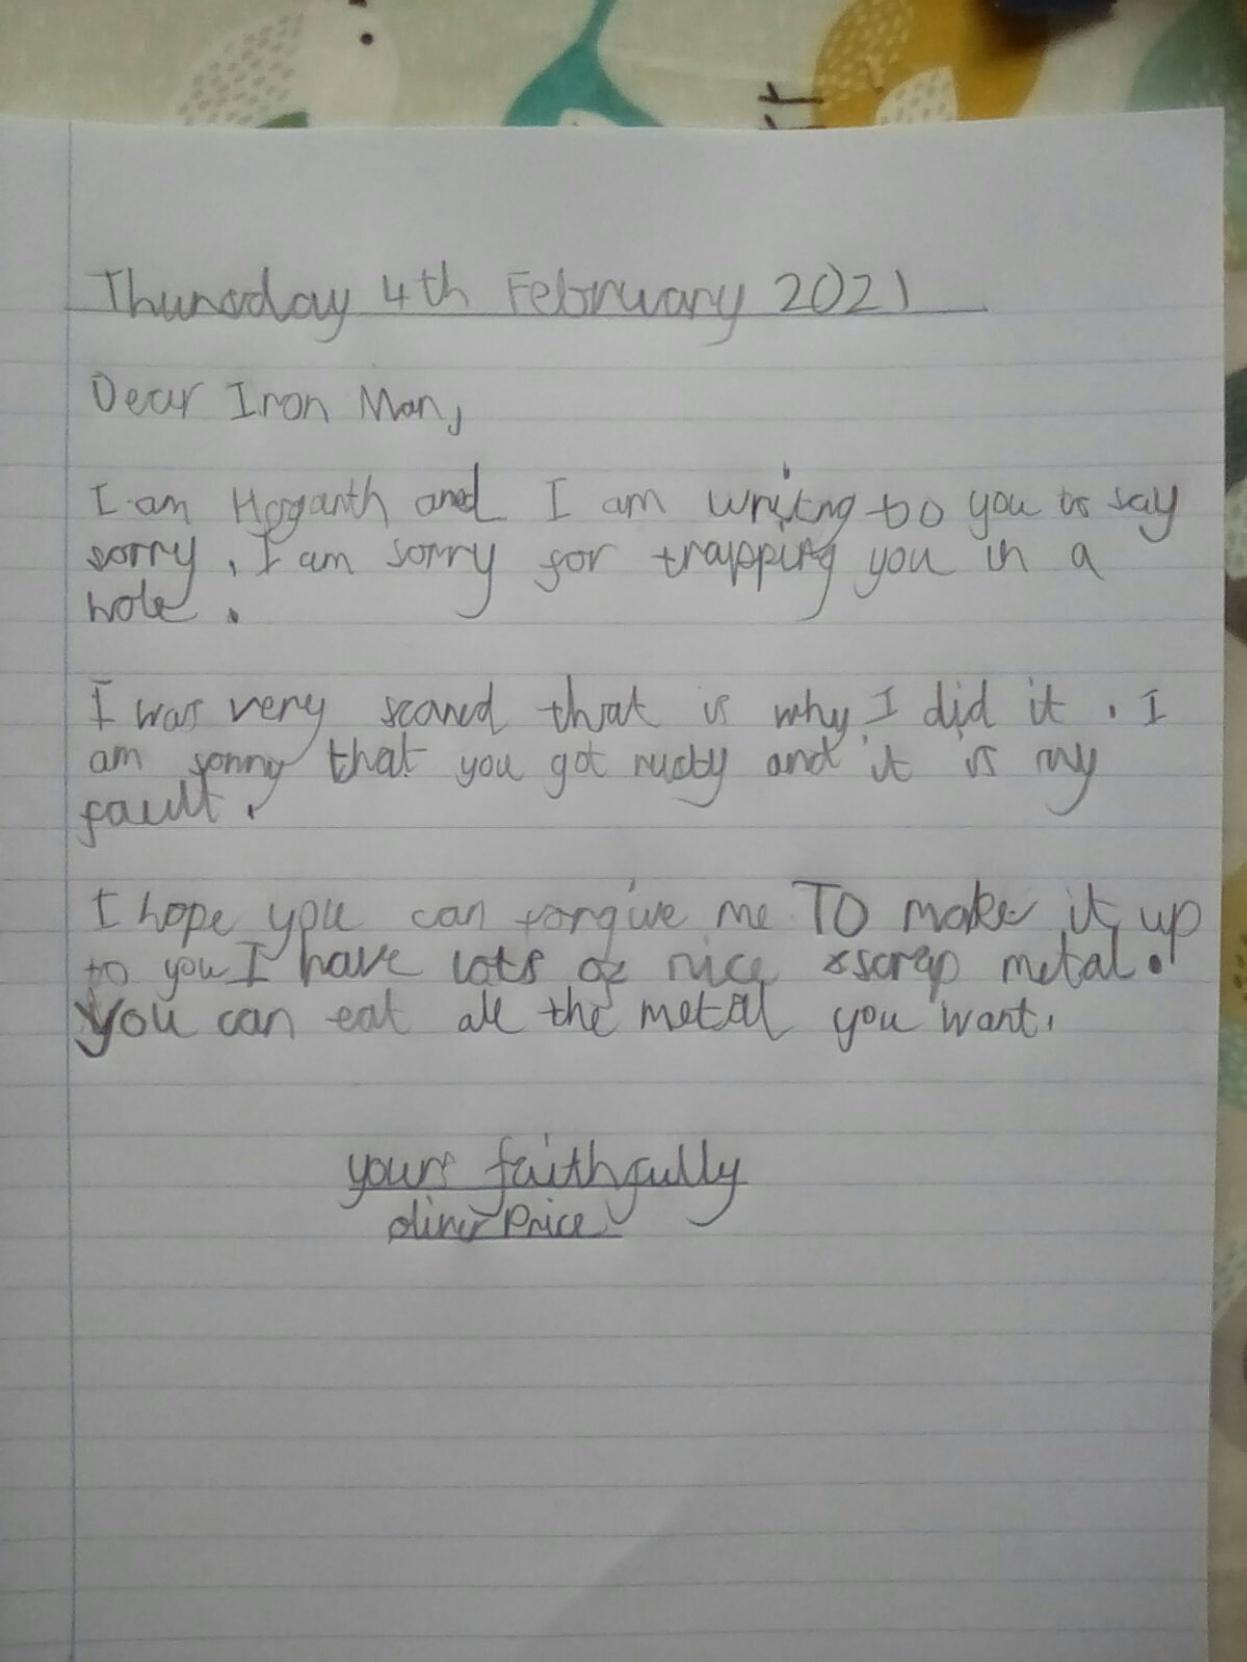 Thursday 4th February 2021
Dear Iron Man,
I am Hogarth and I am writing to you to say
sorry. I am sorry for trapping you in a
hole.
I was very scared that is why I did it. I
am sorry that you got rusty and it is my
fault.
I hope you can forgive me TO make it up
to you I have lots of nice scrap metal.
You can eat all the metal you want.
yours faithfully
oliver Price